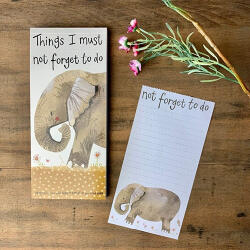 Things I must
not forget to do
not forget to do